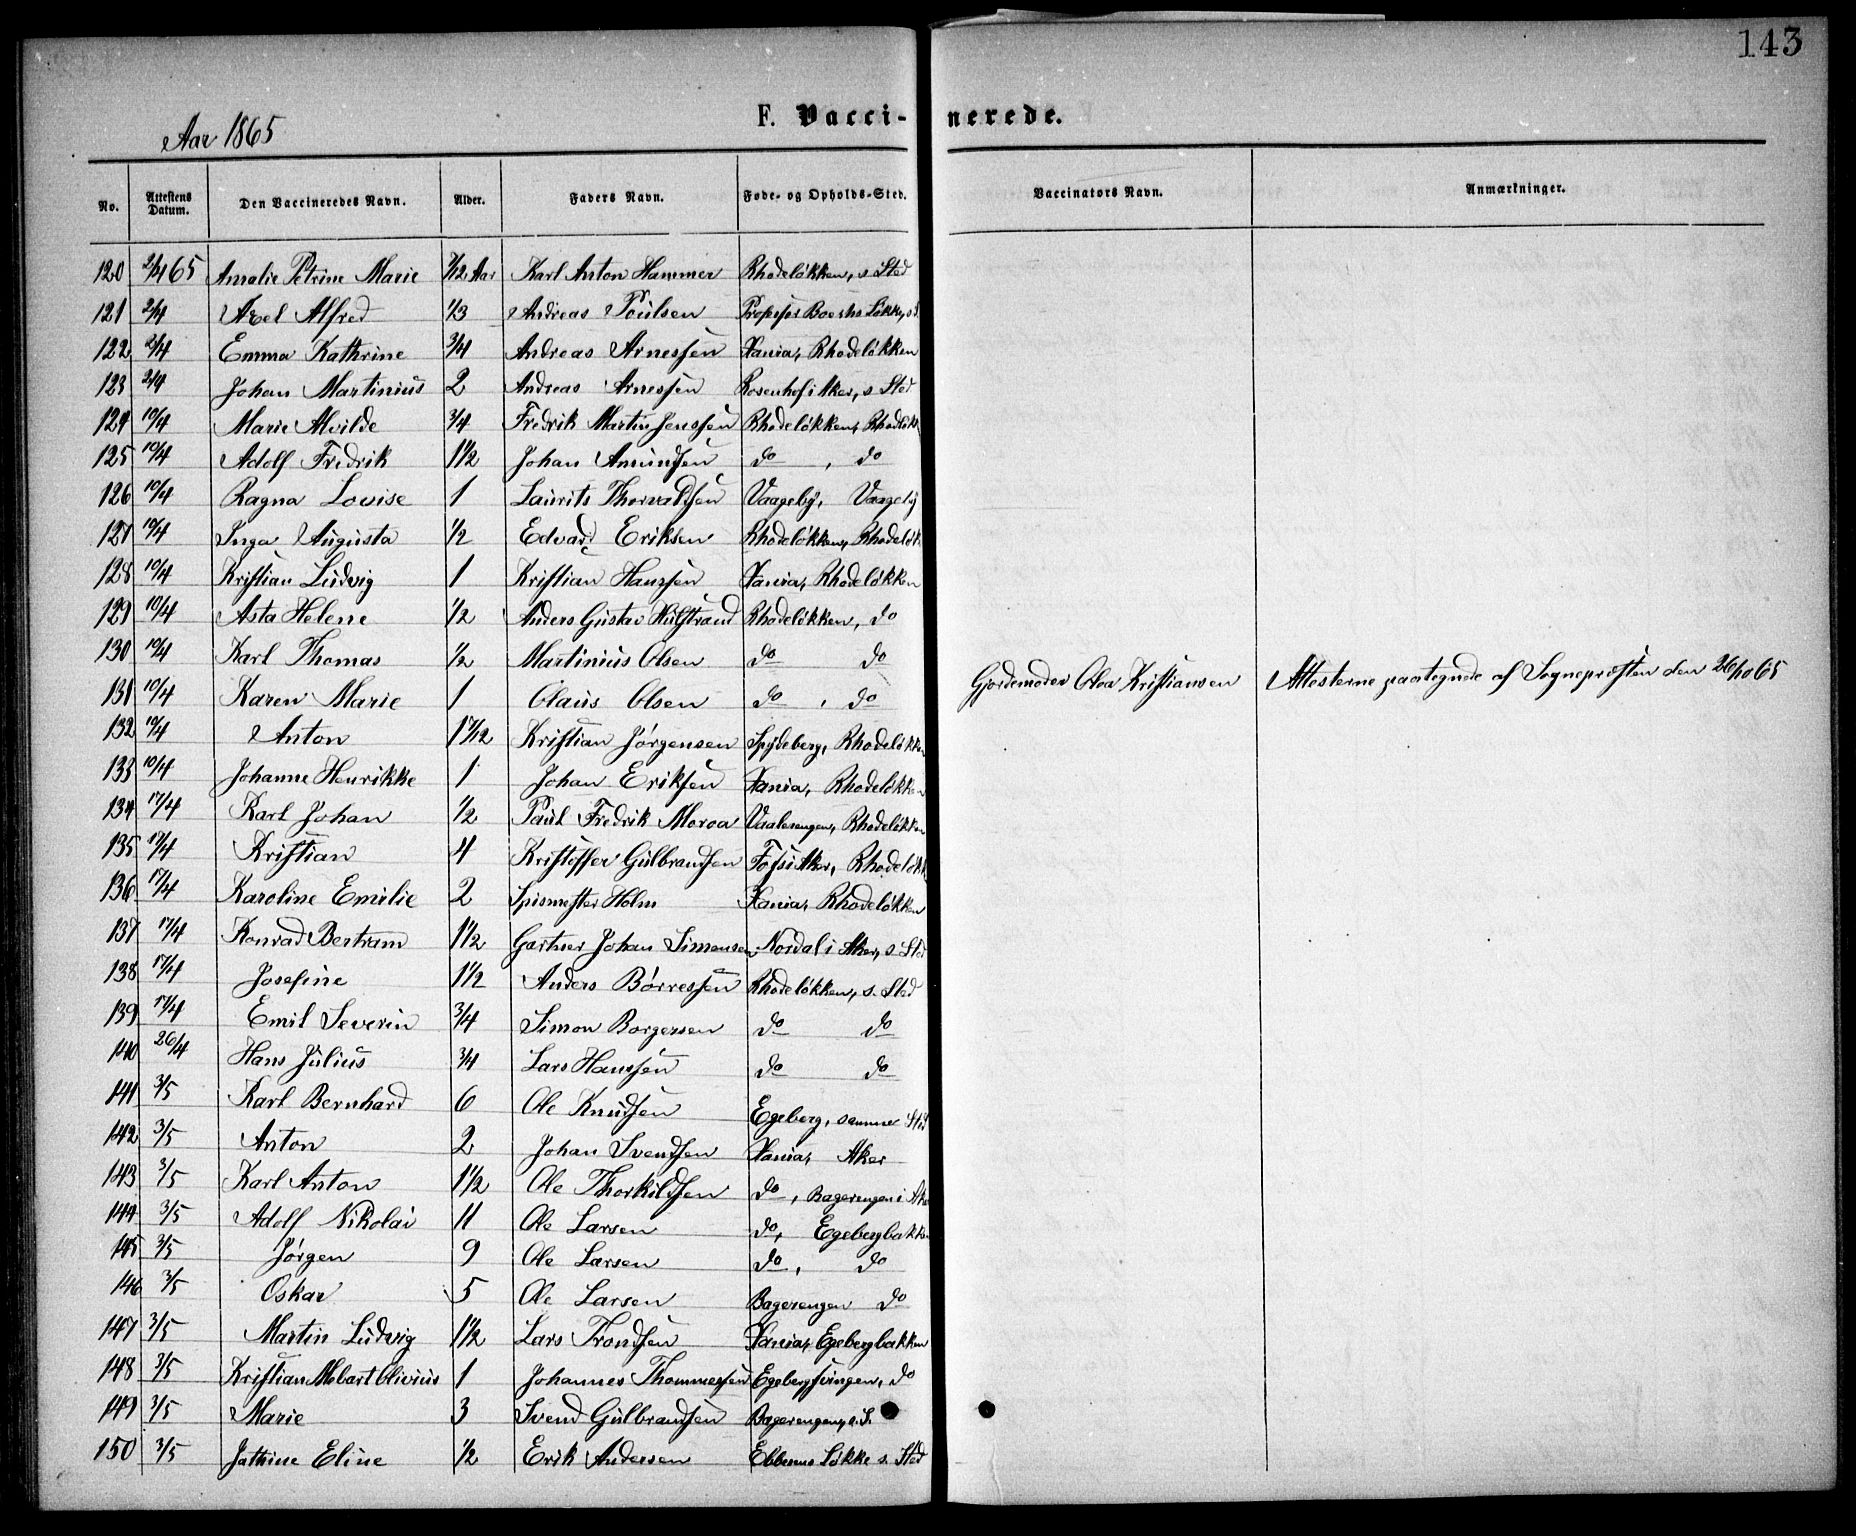 143
F. Vacci-nerede.
Aar 1865
No. Attestens Datum. Den Vaccineredes Navn. Alder. Faders Navn. Føde- og Opholds-Sted. Vaccinators Navn. Anmærkninger.
120 2/4 65 Amalie Petrine Marie 7/12 Aar Karl Anton Hammer Rhodeløkken, s. Sted
121 2/4 Axel Alfred 1/3 Andreas Poulsen Professor Boecks Løkke, s.
122 2/4 Emma Kathrine 3/4 Andreas Arnessen Xania, Rhodeløkken
123 2/4 Johan Martinius 2 Andreas Arnessen Rosenhof i Aker, s Sted
124 10/4 Marie Alvilde 3/4 Fredrik Martin Jenssen Rhodeløkken, Rhodeløk
125 10/4 Adolf Fredrik 1 1/2 Johan Amundsen do , do
126 10/4 Ragna Lovise 1 Laurits Thorvaldsen Vaagebÿ, Vaagebÿ
127 10/4 Inga Augusta 1/2 Edvard Eriksen Rhodeløkken, Rhodeløk
128 10/4 Kristian Ludvig 1 Kristian Hanssen Xania, Rhodeløkken
129 10/4 Asta Helene 1/2 Anders Gustav Hulstrand Rhodeløkken, do
130 10/4 Karl Thomas 1/2 Martinius Olsen do do
131 10/4 Karen Marie 1 Olaus Olsen do , do Gjordemoder Olea Kristiansen Attesterne paategnede af Sogneprøsten den 26/10 65
132 10/4 Anton 1 7/12 Kristian Jørgensen Spydeberg, Rhodeløkken
133 10/4 Johanne Henrikke 1 Johan Eriksen Xania, Rhodeløkken
134 17/4 Karl Johan 1/2 Paul Fredrik Moroa Vaalerengen, Rhodeløkken
135 17/4 Kristian 4 Kristoffer Gulbrandsen Fossi Aker, Rhodeløkk
136 17/4 Karoline Emilie 2 Spismester Holm Xania, Rhodeløkken
137 17/4 Konrad Bertram 1 1/2 Gartner Johan Simensen Nordal i Aker, s. Sted
138 17/4 Josefine 1 1/2 Anders Børressen Rhodeløkken, s. Sted
139 17/4 Emil Severin 3/4 Simon Borgersen do do
140 26/4 Hans Julius 3/4 Lars Hanssen do do
141 3/5 Karl Bernhard 6 Ole Knudsen Egeberg, samme Sted
142 3/5 Anton 2 Johan Svendsen Xania, Aker
143 3/5 Karl Anton 1 1/2 Ole Thorkildsen do, Bagerengen i Ake
144 3/5 Adolf Nikolai 11 Ole Larsen do, Egebergbakken
145 3/5 Jørgen 9 Ole Larsen do, do
146 3/5 Oskar 5 Ole Larsen Bagerengen do
147 3/5 Martin Ludvig 1 1/2 Lars Trondsen Xania, Egebergbakken
148 3/5 Kristian Albart Olivius 1 Johannes Thommessen Egebergsvingen, do
149 3/5 Marie 3 Svend Gulbrandsen Bagerengen, s. S.
150 3/5 Jathine Eline 1/2 Erik Andersen Ebbesens Løkke s. Sted